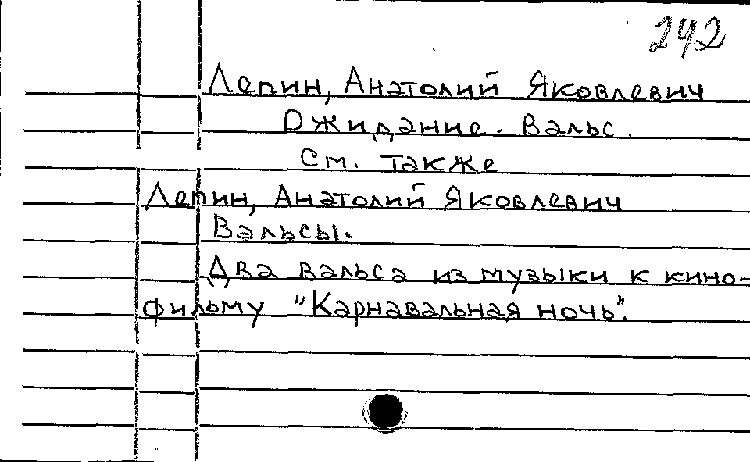 242
Лепин, Анатолий Яковлевич
Ожидание. Вальс.
См. также
Лепин, Анатолий Яковлевич
Вальсы.
Два вальса из музыки к кино-
фильму "Карнавальная ночь".